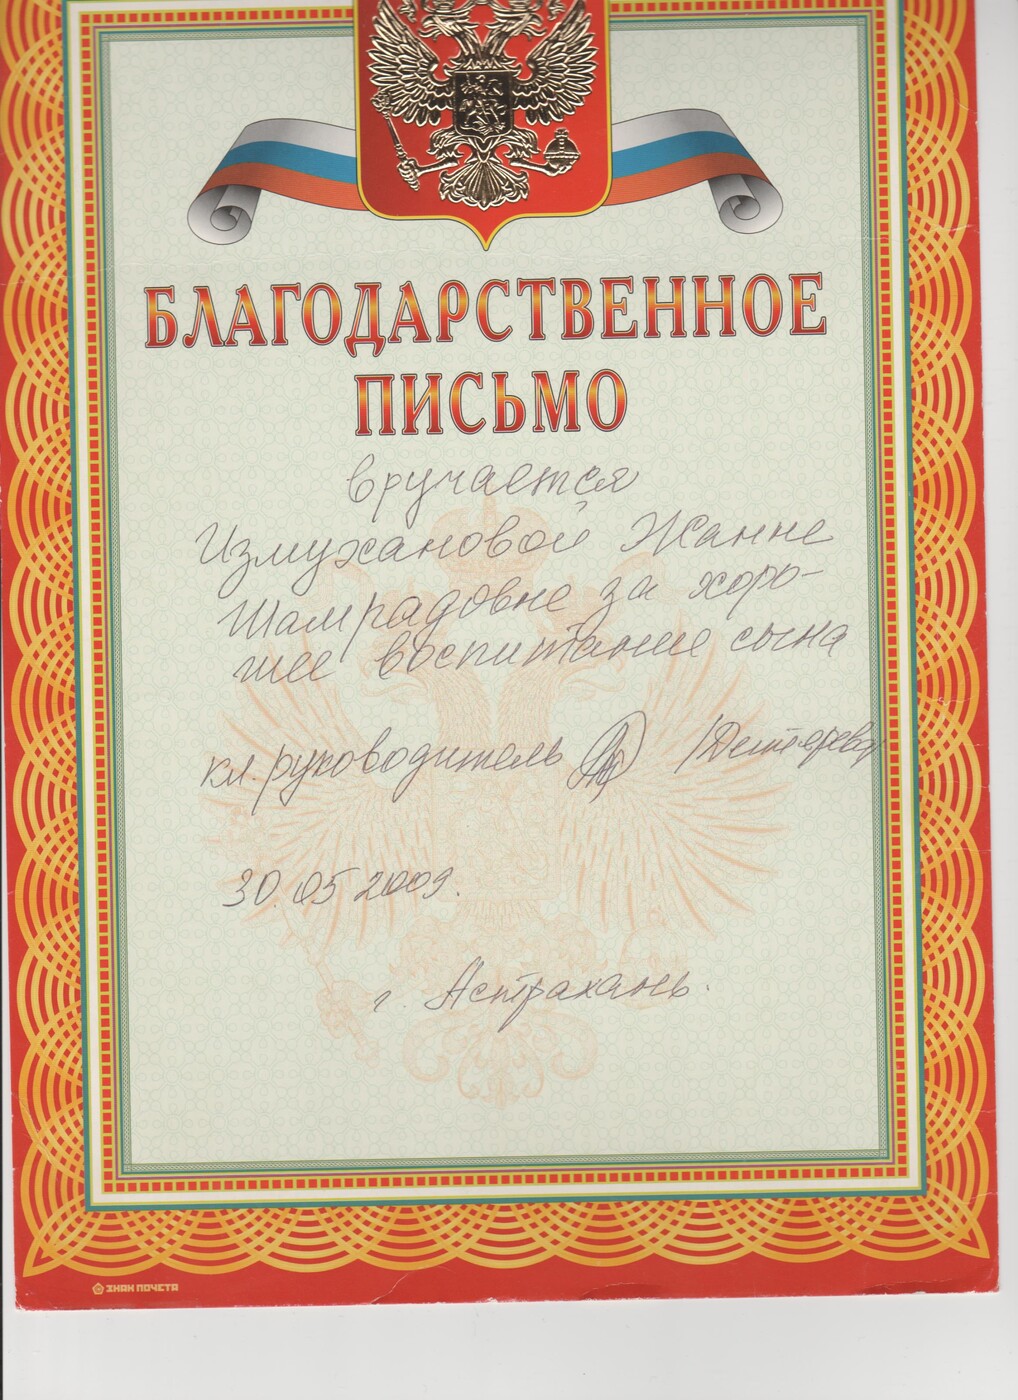 БЛАГОДАРСТВЕННОЕ
ПИСЬМО
вручается
Измухановой Жанне
Шамрадовне за хоро-
шее воспитание сына
кл. руководитель /Дегтярева
30.05 2009.
г. Астрахань.
ЗНАК ПОЧЕТА